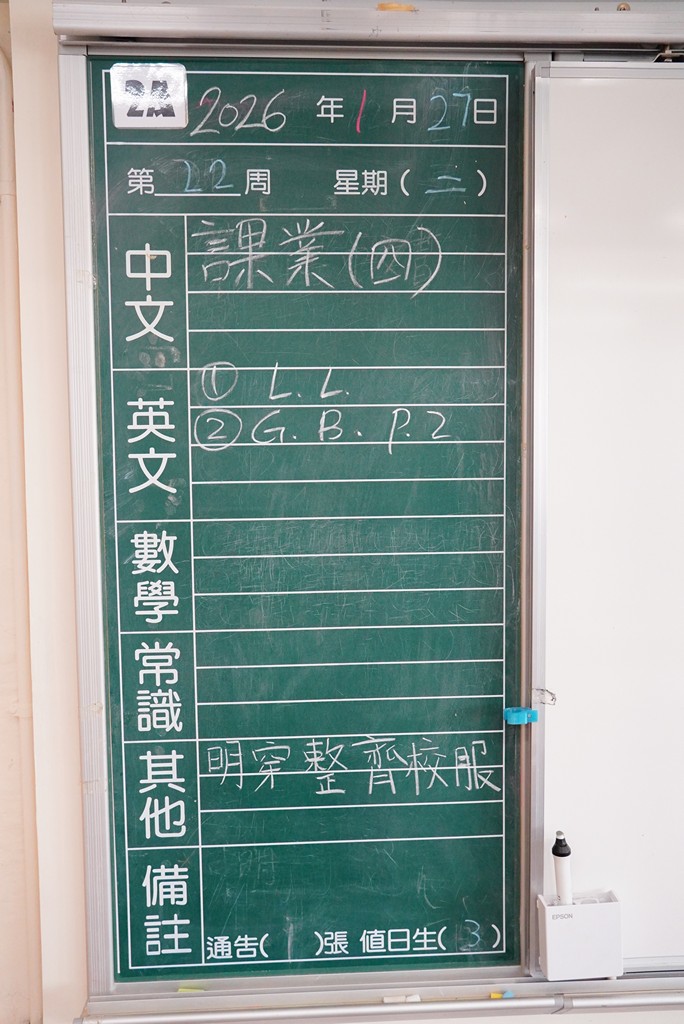 2A 2026 年 1 月 27 日
第 22 周 星期 ( 二 )
中文 課業(四)
英文 ① L. L.
② G. B. P. 2
數學
常識
其他 明穿整齊校服
備註 通告( 1 )張 值日生( 3 )
EPSON